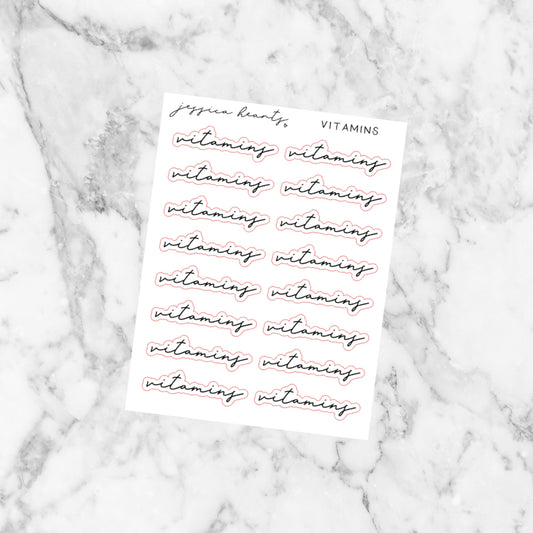 jessica hearts
VITAMINS
vitamins vitamins
vitamins vitamins
vitamins vitamins
vitamins vitamins
vitamins vitamins
vitamins vitamins
vitamins vitamins
vitamins vitamins